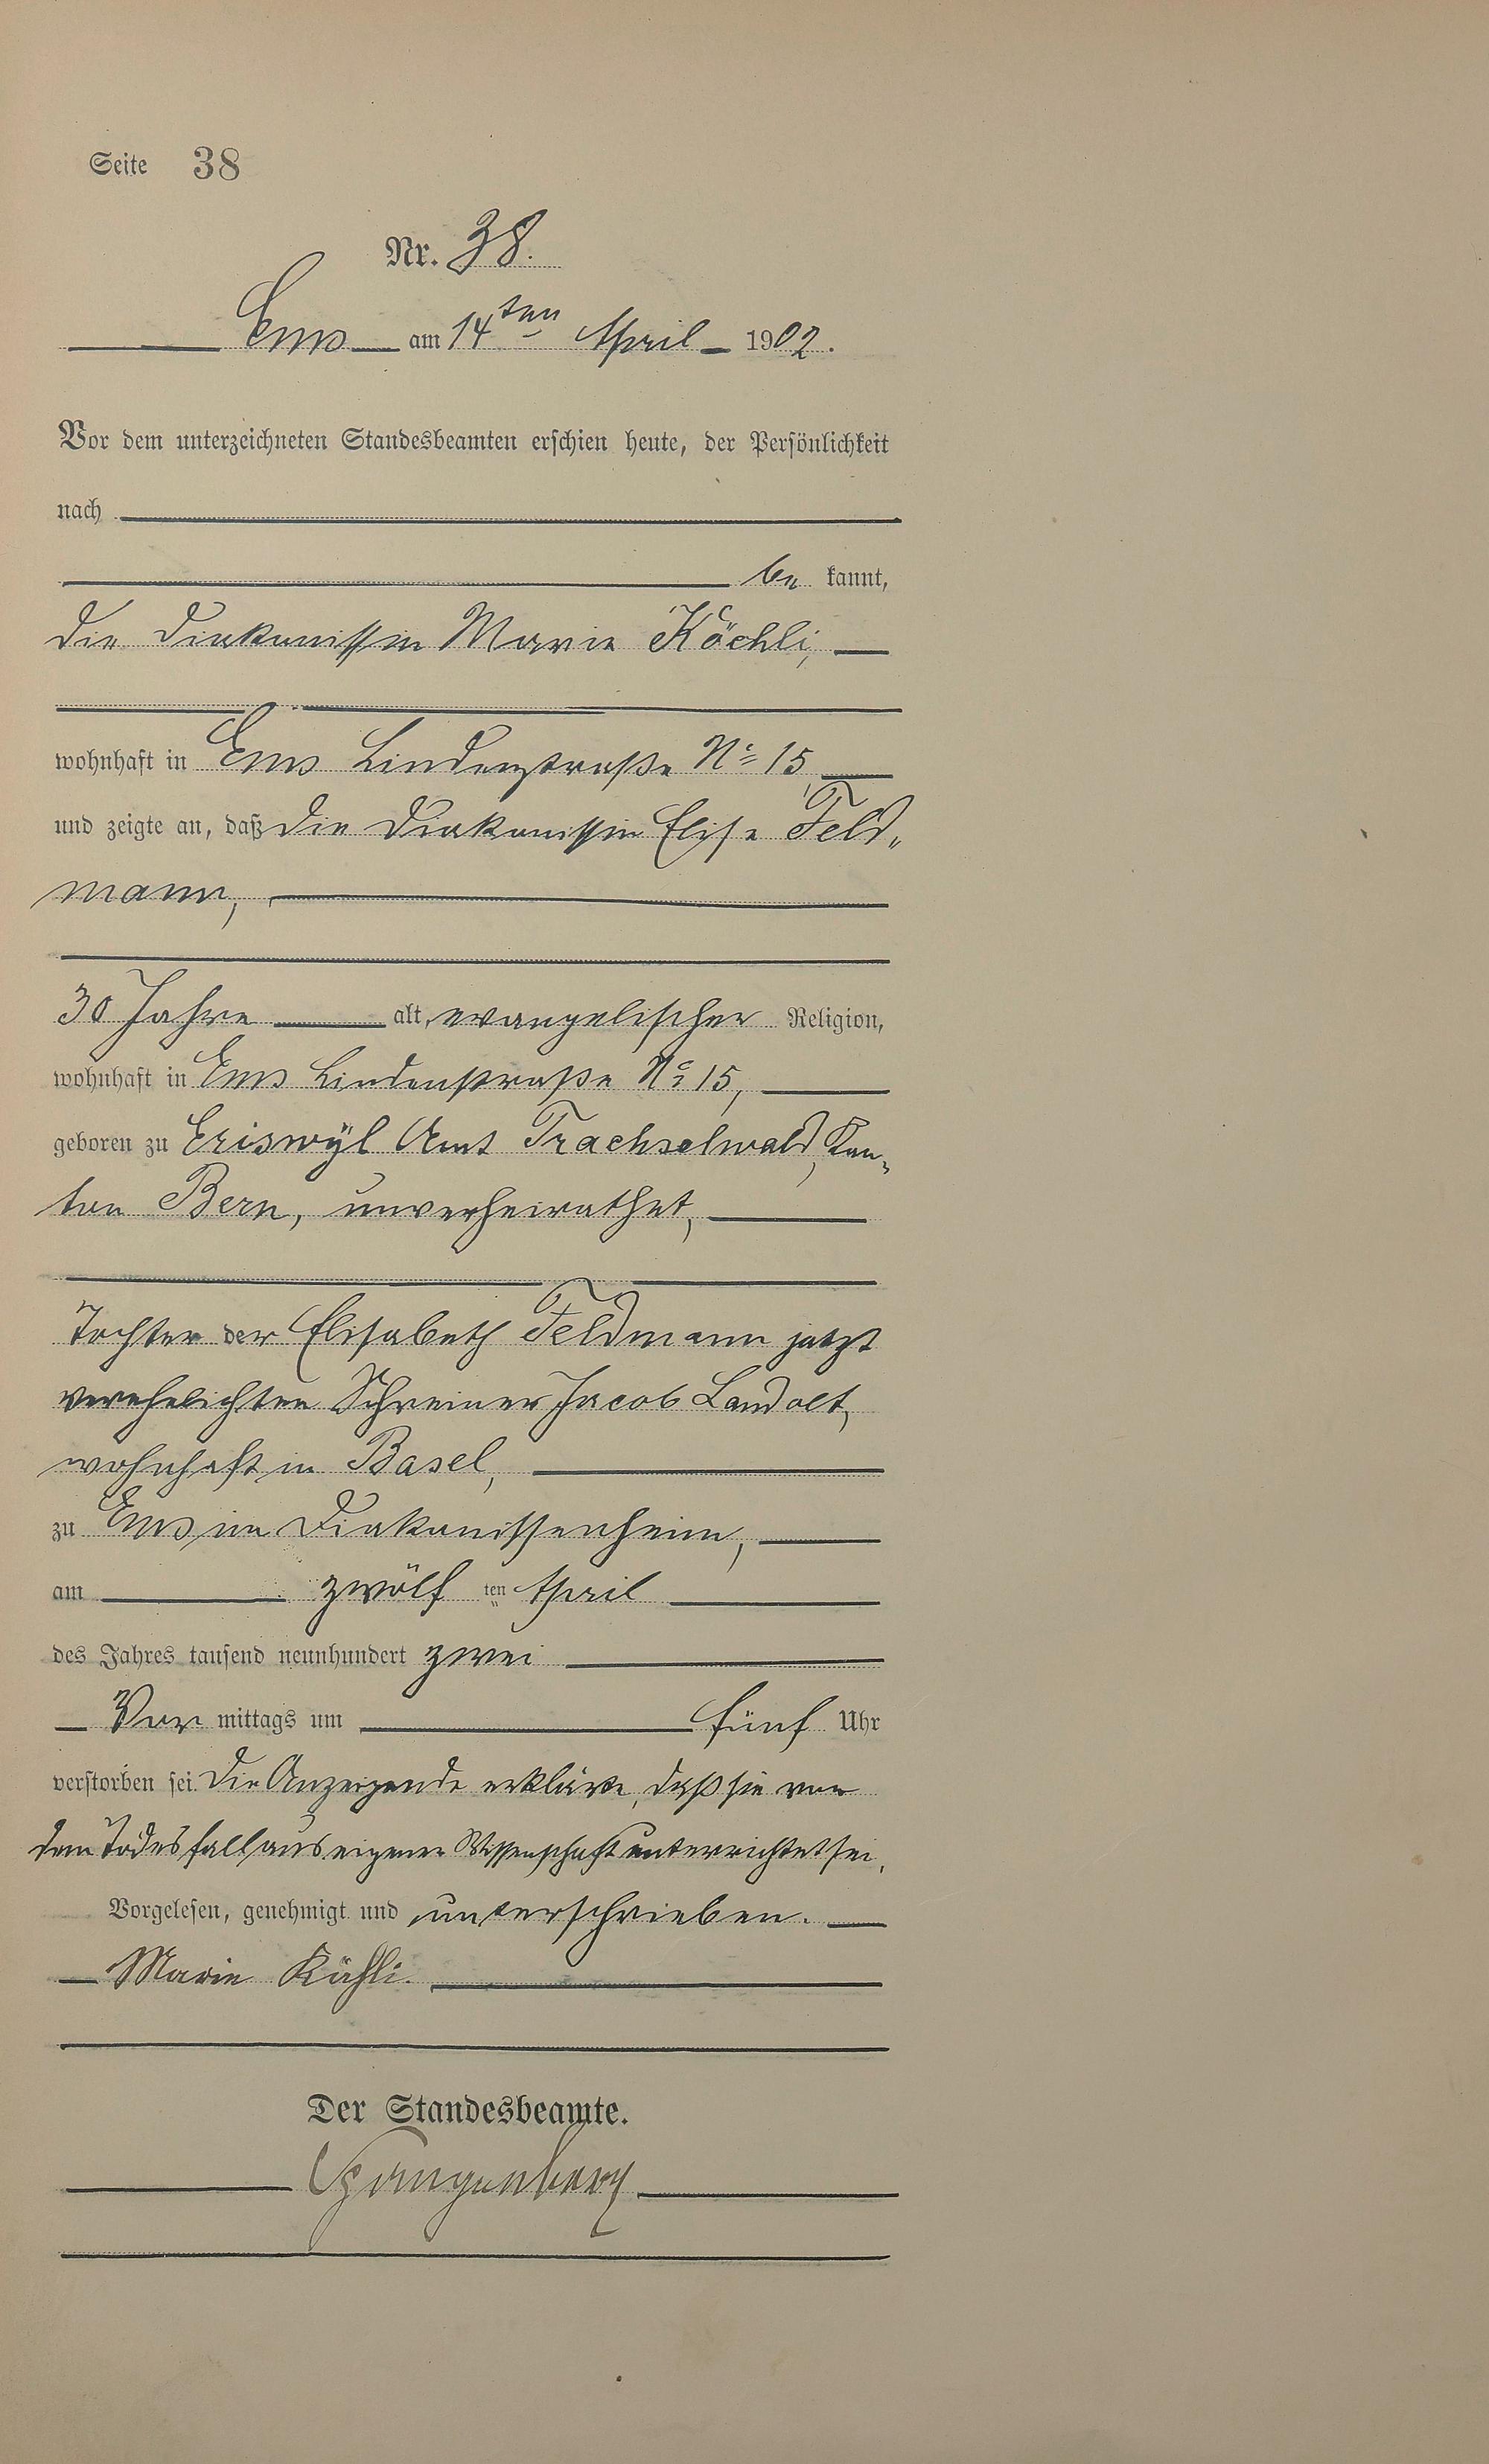 Seite 38
Nr. 38.
Ems am 14ten April 1902.
Vor dem unterzeichneten Standesbeamten erschien heute, der Persönlichkeit
nach
be kannt,
die Diakonissin Marie Köchli,
wohnhaft in Ems Lindenstraße No 15,
und zeigte an, daß die Diakonissin Elise Feld„
mann,
30 Jahre alt, evangelischer Religion,
wohnhaft in Ems Lindenstraße No 15,
geboren zu Eriswÿl Amt Trachselwald, Kan„
ton Bern, unverheirathet,
Tochter der Elisabeth Feldmann jetzt
verehelichten Schreiner Jacob Landolt,
wohnhaft in Basel,
zu Ems im Diakonissenheim,
am zwölf ten April
des Jahres tausend neunhundert zwei
Vor mittags um fünf Uhr
verstorben sei. Die Anzeigende erklärte, daß sie von
dem Todesfall aus eigener Wissenschaft unterrichtet sei.
Vorgelesen, genehmigt und unterschrieben.
Marie Köchli.
Der Standesbeamte.
Spangenberg